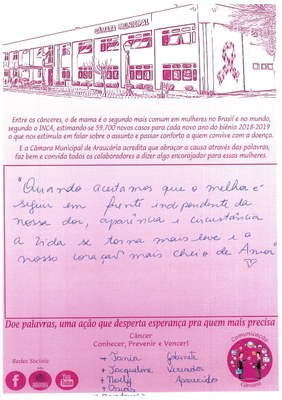 CÂMARA MUNICIPAL
Entre os cânceres, o de mama é o segundo mais comum em mulheres no Brasil e no mundo,
segundo o INCA, estimando-se 59.700 novos casos para cada novo ano do biênio 2018-2019
o que nos estimula em falar sobre o assunto e passar conforto a quem convive com a doença.
E a Câmara Municipal de Araucária acredita que abraçar a causa através das palavras,
faz bem e convida todos os colaboradores a dizer algo encorajador para essas mulheres.
"Quando aceitamos que o melhor é
seguir em frente independente da
nossa dor, aparência e circunstância
a vida se torna mais leve e o
nosso coração mais cheio de Amor"
Doe palavras, uma ação que desperta esperança pra quem mais precisa
Câncer
Conhecer, Prevenir e Vencer!
Redes Sociais:
You
Tube
+ Tania Gabinete
+ Jacqueline Vereador
+ Nelly Aparecido
+
Comunicação
Câmara